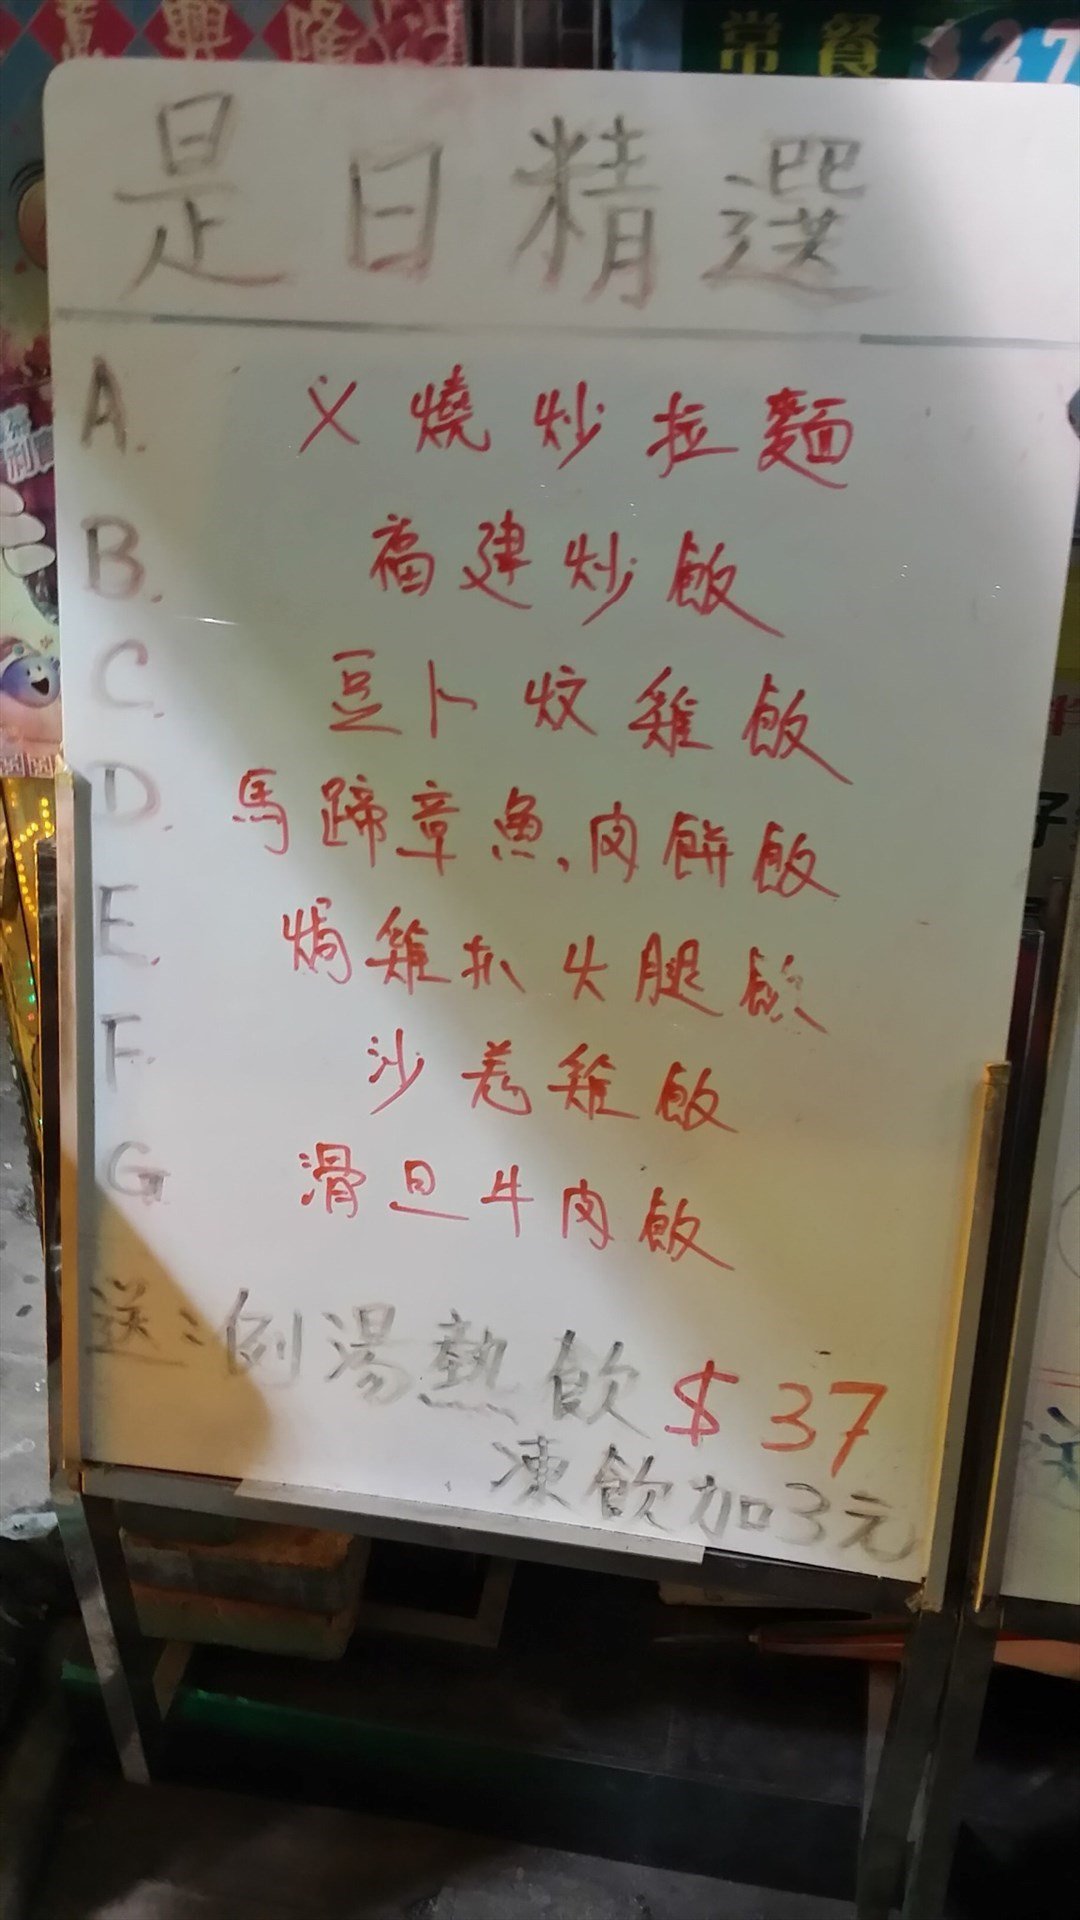 萬興隆
常餐 $27
是日精選
A. 义燒炒拉麵
B. 福建炒飯
C. 豆卜炆雞飯
D. 馬蹄章魚,肉餅飯
E. 焗雞扒火腿飯
F. 沙羌雞飯
G 滑旦牛肉飯
送:例湯熱飲 $37
凍飲加3元